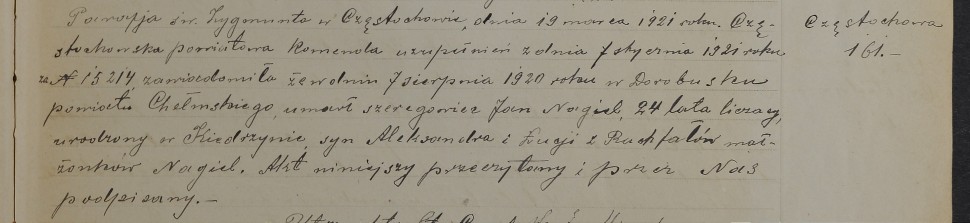 Parafja św. Zygmunta w Częstochowie, dnia 19 marca 1921 roku. Czę-
stochowska powiatowa Komenda uzupełnień z dnia 7 stycznia 1921 roku
za № 15214 zawiadomiła że w dniu 7 sierpnia 1920 roku w Dorohusku
powiatu Chełmskiego, umarł szeregowiec Jan Nagiel, 24 lata liczący,
urodzony w Kiedrzynie, syn Aleksandra i Łucji z Rachfałów mał-
żonków Nagiel. Akt niniejszy przeczytany i przez Nas
podpisany. —
Częstochowa
161. —